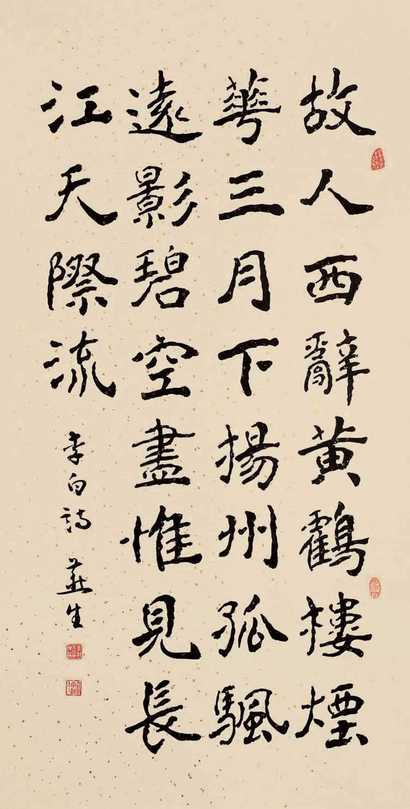 故人西辭黃鶴樓煙
華三月下揚州孤颿
遠影碧空盡惟見長
江天際流
李白詩 生